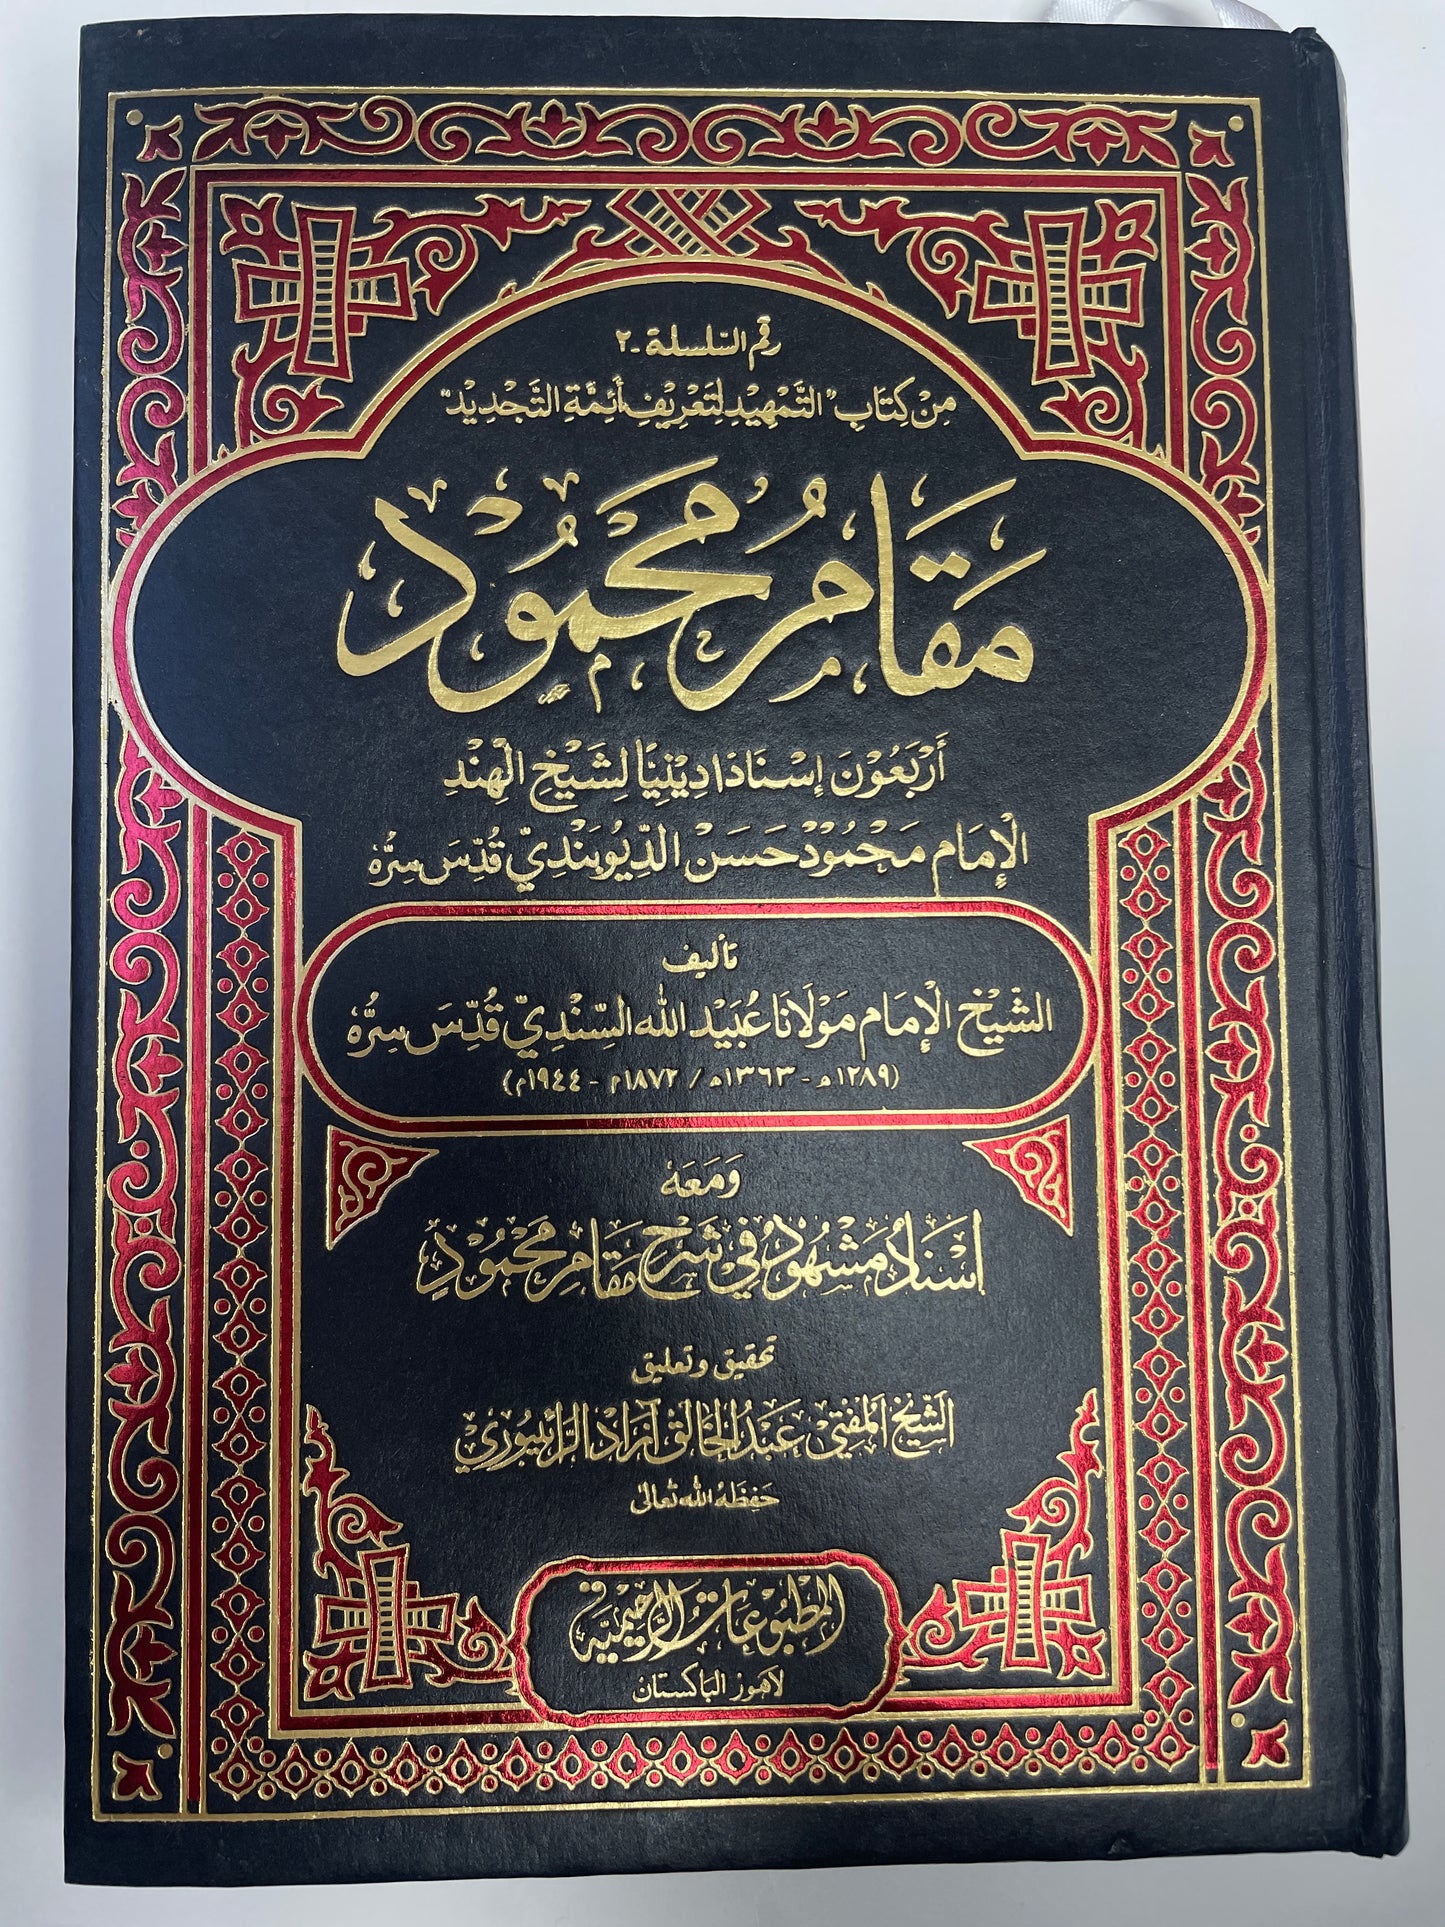 رقم السّلسلة -٢
مِنْ كِتَابِ "التَّمْهِيْدِ لِتَعْرِيْفِ أَئِمَّةِ التَّجْدِيْدِ"
مَقَامِ مَحْمُوْدْ
أَرْبَعُوْنَ إِسْنَادًا دِيْنِيًا لِشَيْخِ الْهِنْدِ
الْإِمَامِ مَحْمُوْدْ حَسَنْ الدِّيُوبَنْدِيّ قُدِّسَ سِرُّهُ
تأليف
الشَّيْخِ الْإِمَامِ مَوْلَانَا عُبَيْدِ اللّٰهِ السِّنْدِيّ قُدِّسَ سِرُّهُ
(١٢٨٩هـ - ١٣٦٣هـ / ١٨٧٢م - ١٩٤٤م)
وَمَعَهُ
اِسْنَادُ مَشْهُوْدْ فِي شَرْحِ مَقَامِ مَحْمُوْدِ
تحقيق وتعليق
الشَّيْخ الْمُفْتِيْ عَبْدُ الْخَالِقْ آزَادْ الرَّائِبُوْرِي
حَفِظَهُ اللّٰه تَعَالٰى
المَطْبُوْعَاتُ الرَّحِيْمِيَّة
لاهور الباكستان